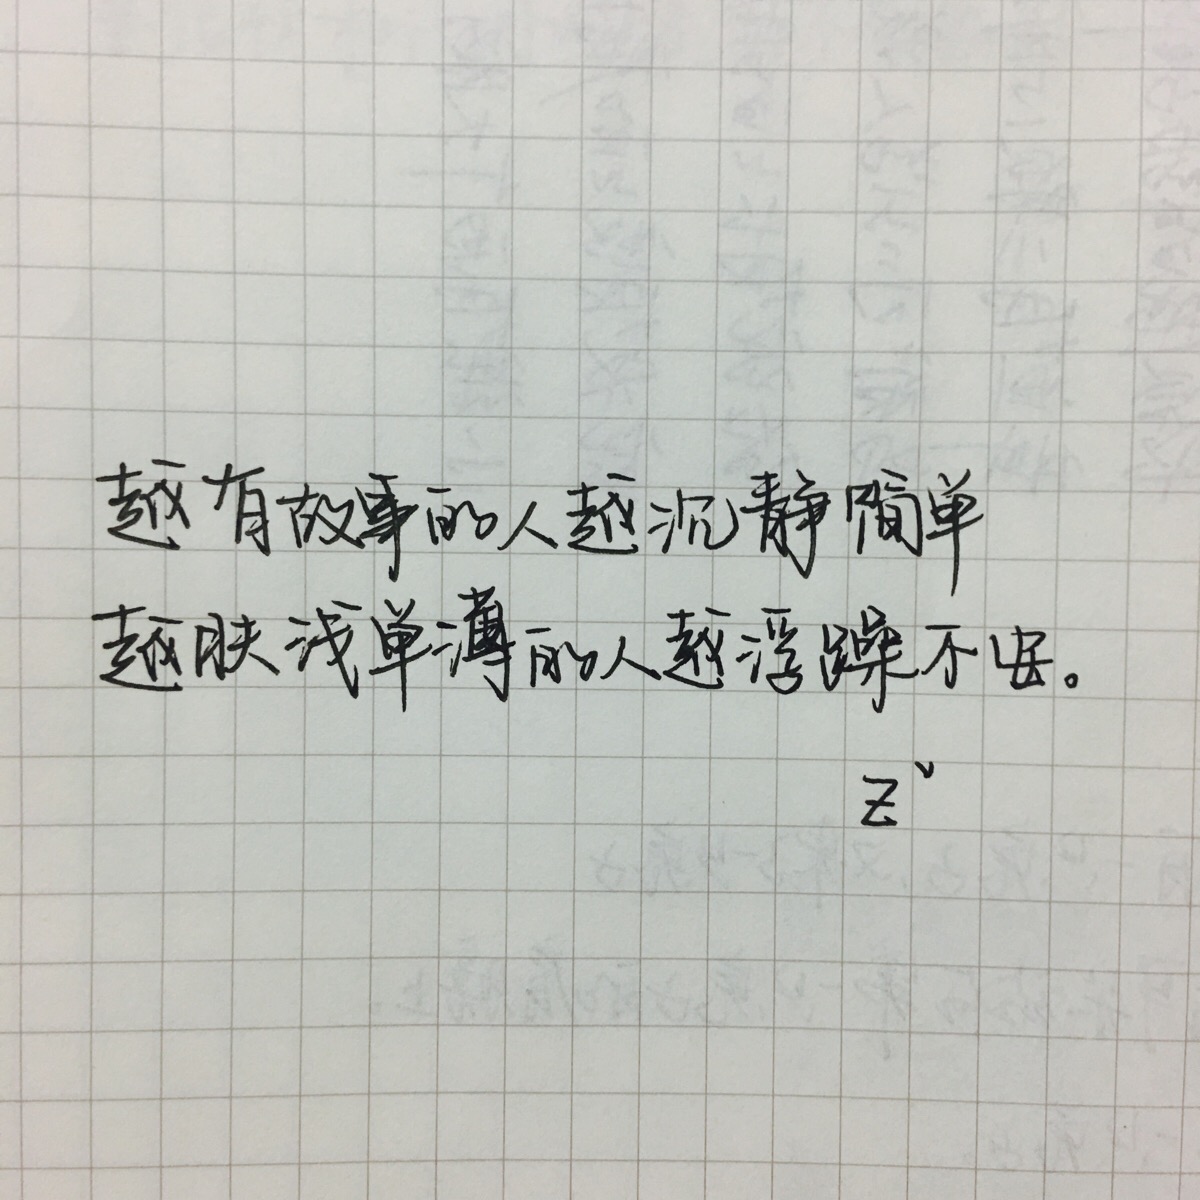 越有故事的人越沉静简单
越肤浅单薄的人越浮躁不安。
Z